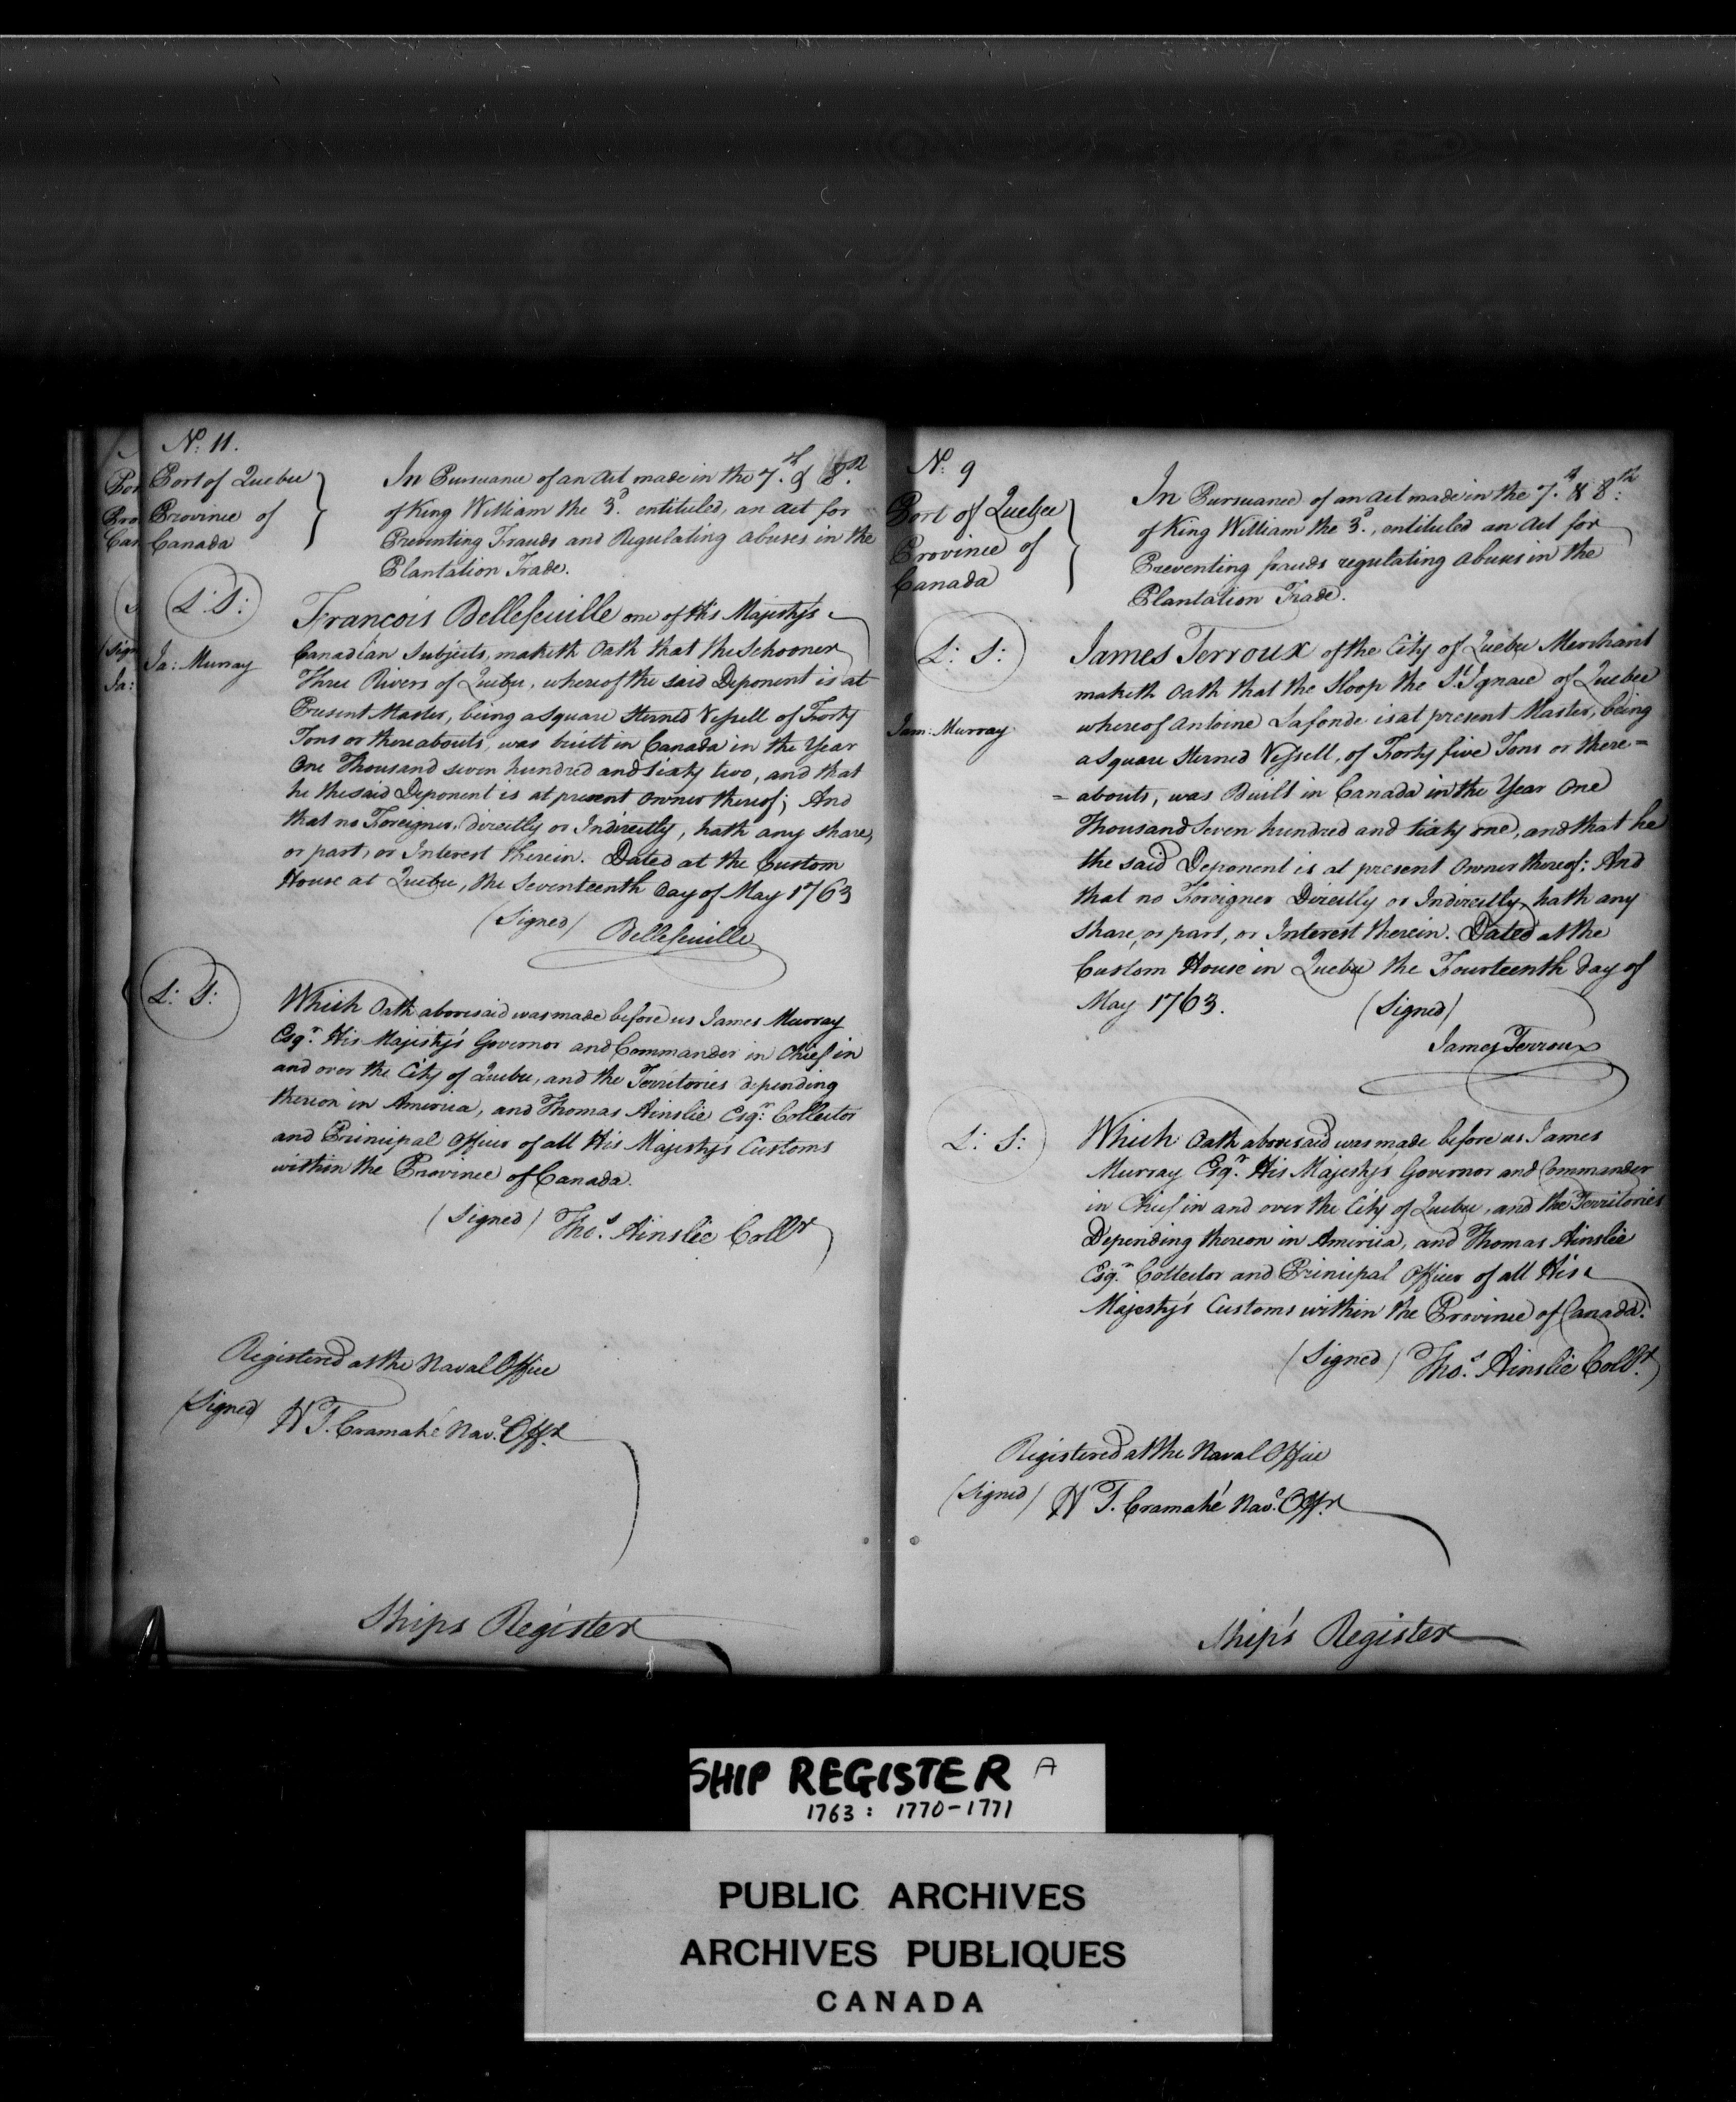 N.º 11.
Port of Quebec
Province of
Canada
In Pursuance of an Act made in the 7.th & 8.th
of King William the 3.d entituled, an act for
Preventing Frauds and Regulating abuses in the
Plantation Trade.
L: S:
Ja: Murray
Francois Bellefeuille one of His Majesty's
Canadian Subjects, maketh Oath that the Schooner
Three Rivers of Quebec, whereof the said Deponent is at
Present Master, being a Square Sterned Vessell of Forty
Tons or thereabouts, was built in Canada in the Year
One Thousand seven hundred and Sixty two, and that
he the said Deponent is at present Owner thereof; And
that no Foreigner, directly or Indirectly, hath any share,
or part, or Interest therein. Dated at the Custom
House at Quebec, the Seventeenth Day of May 1763
(Signed) Bellefeuille
L: S:
Which Oath abovesaid was made before us James Murray
Esq.r His Majesty's Governor and Commander in Chief in
and over the City of Quebec, and the Territories depending
thereon in America, and Thomas Ainslie Esq.r Collector
and Principal Officer of all His Majesty's Customs
within the Province of Canada.
(Signed) Tho.s Ainslie Coll.r
Registered at the Naval Office
(Signed) H T. Cramahé Nav.l Off.r
Ships Register
N.º 9
Port of Quebec
Province of
Canada
In Pursuance of an Act made in the 7.th & 8.th
of King William the 3.d, entituled an Act for
Preventing frauds regulating abuses in the
Plantation Trade.
L: S:
Jam: Murray
James Terroux of the City of Quebec Merchant
maketh Oath that the Sloop the S.t Ignace of Quebec
whereof Antoine Lafonde is at present Master, being
a Square Sterned Vessell, of Forty five Tons or there=
=abouts, was Built in Canada in the Year One
Thousand Seven hundred and Sixty one, and that he
the said Deponent is at present Owner thereof: And
that no Foreigner Directly or Indirectly, hath any
Share, or part, or Interest therein. Dated at the
Custom House in Quebec the Fourteenth Day of
May 1763. (Signed)
James Terroux
L: S:
Which Oath abovesaid was made before us James
Murray Esq.r His Majesty's Governor and Commander
in Chief in and over the City of Quebec, and the Territories
Depending thereon in America, and Thomas Ainslie
Esq.r Collector and Principal Officer of all His
Majesty's Customs within the Province of Canada.
(Signed) Tho.s Ainslie Coll.r
Registered at the Naval Office
(Signed) H T. Cramahé Nav.l Off.r
Ship's Register
SHIP REGISTER A
1763: 1770-1771
PUBLIC ARCHIVES
ARCHIVES PUBLIQUES
CANADA